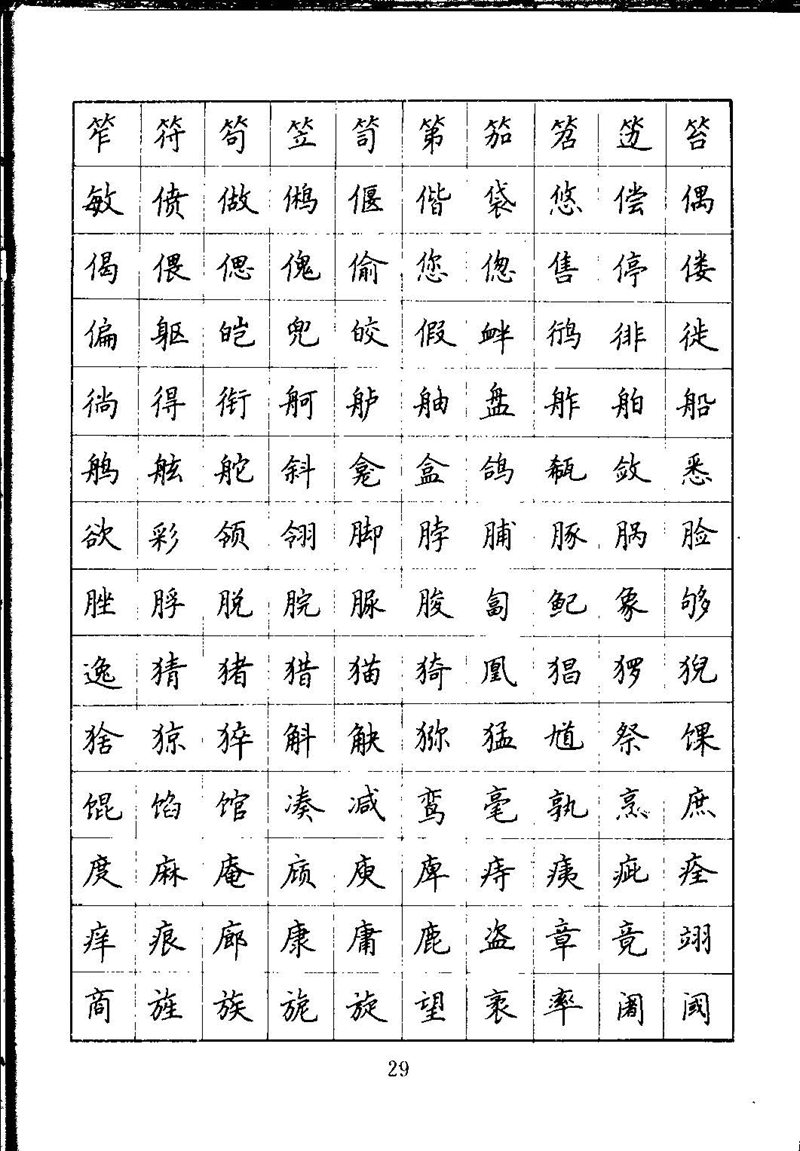 笮符笱笠笥第笳笤笾笞
敏偾做鸺偃偕袋悠偿偶
偈偎偲傀偷您偬售停偻
偏躯皑兜皎假衅鸻徘徙
徜得衔舸舻舳盘舴舶船
鸼舷舵斜龛盒鸽瓻敛悉
欲彩领翎脚脖脯豚脶脸
脞脬脱脘脲朘匐鱾象够
逸猜猪猎猫猗凰猖猡猊
猞猄猝斛觖猕猛馗祭馃
馄馅馆凑减鸾毫孰烹庶
庹麻庵庼庾庳痔痍疵痊
痒痕廊康庸鹿盗章竟翊
商旌族旎旋望袤率阇阈
29